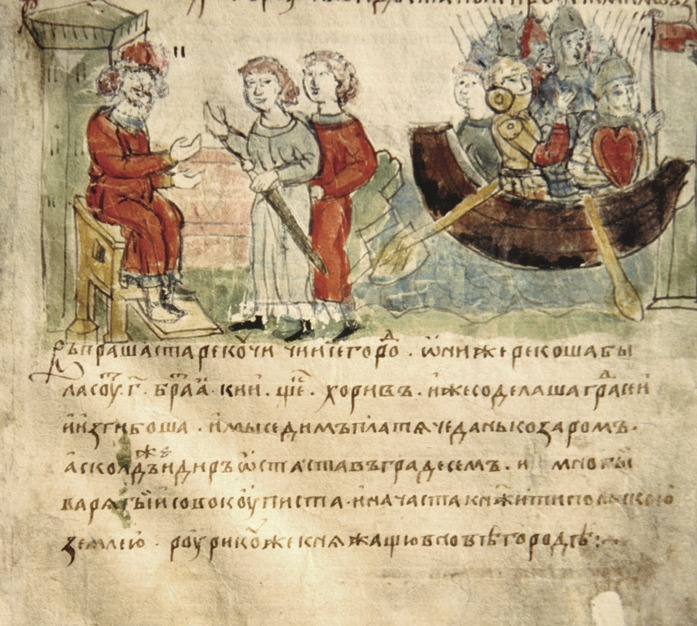 въпрашаста рекочи чии се горо͏ⷣ . ѿни же рекоша бы
ла соу҃ .г҃. браⷮа . кии . щеⷦ . хоривъ . иже соделаша граⷣ сеи
и изгибоша . и мы седимъ платѧче дань козаромъ .
асколдъ же и диръ ѡстаста въ граде семъ . и многы
варѧгы исовокоуписта . и начаста кнѧжити польскою
землею . роурикоу же кнѧжащю в новѣгородѣ :~